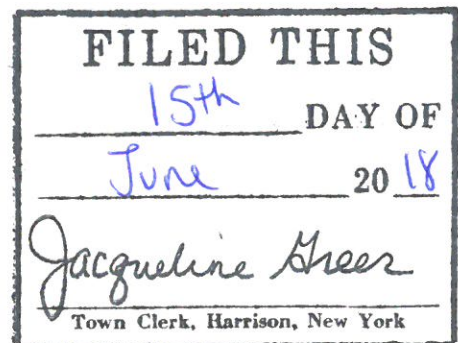 FILED THIS
15th DAY OF
June 20 18
Jacqueline Greer
Town Clerk, Harrison, New York